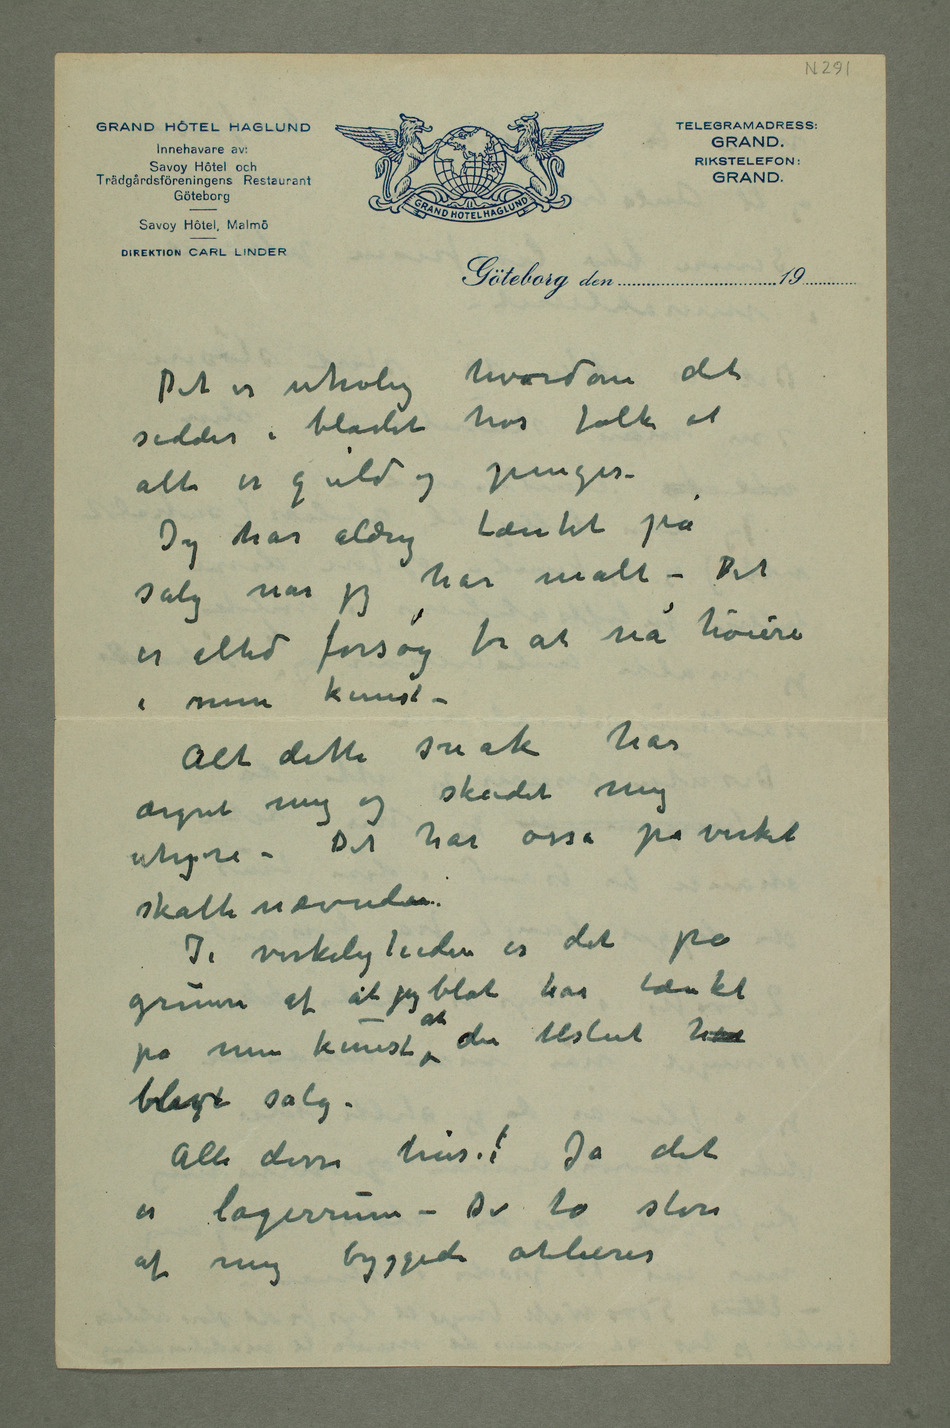 N 291
GRAND HÔTEL HAGLUND
Innehavare av:
Savoy Hôtel och
Trädgårdsföreningens Restaurant
Göteborg
Savoy Hôtel, Malmö
DIREKTION CARL LINDER
GRAND HOTEL HAGLUND
TELEGRAMADRESS:
GRAND.
RIKSTELEFON:
GRAND.
Göteborg den 19
Det er utrolig hvordan det
sidder i blodet hos folk at
alt er guld og penger–
Jeg har aldrig tænkt på
salg når jeg har malt – Det
er altid forsøg for at nå høiere
i min kunst –
Alt dette snak har
ærgret mig og skadet mig
uhyre – Det har osså påvirket
skattenævnden.
I virkeligheden er det på
grunn af at jeg blot har tænkt
på min kunst at der tilslut har
blevet salg.
Alle disse hus.! Ja det
er lagerrum – De to store
af mig byggede atelierer